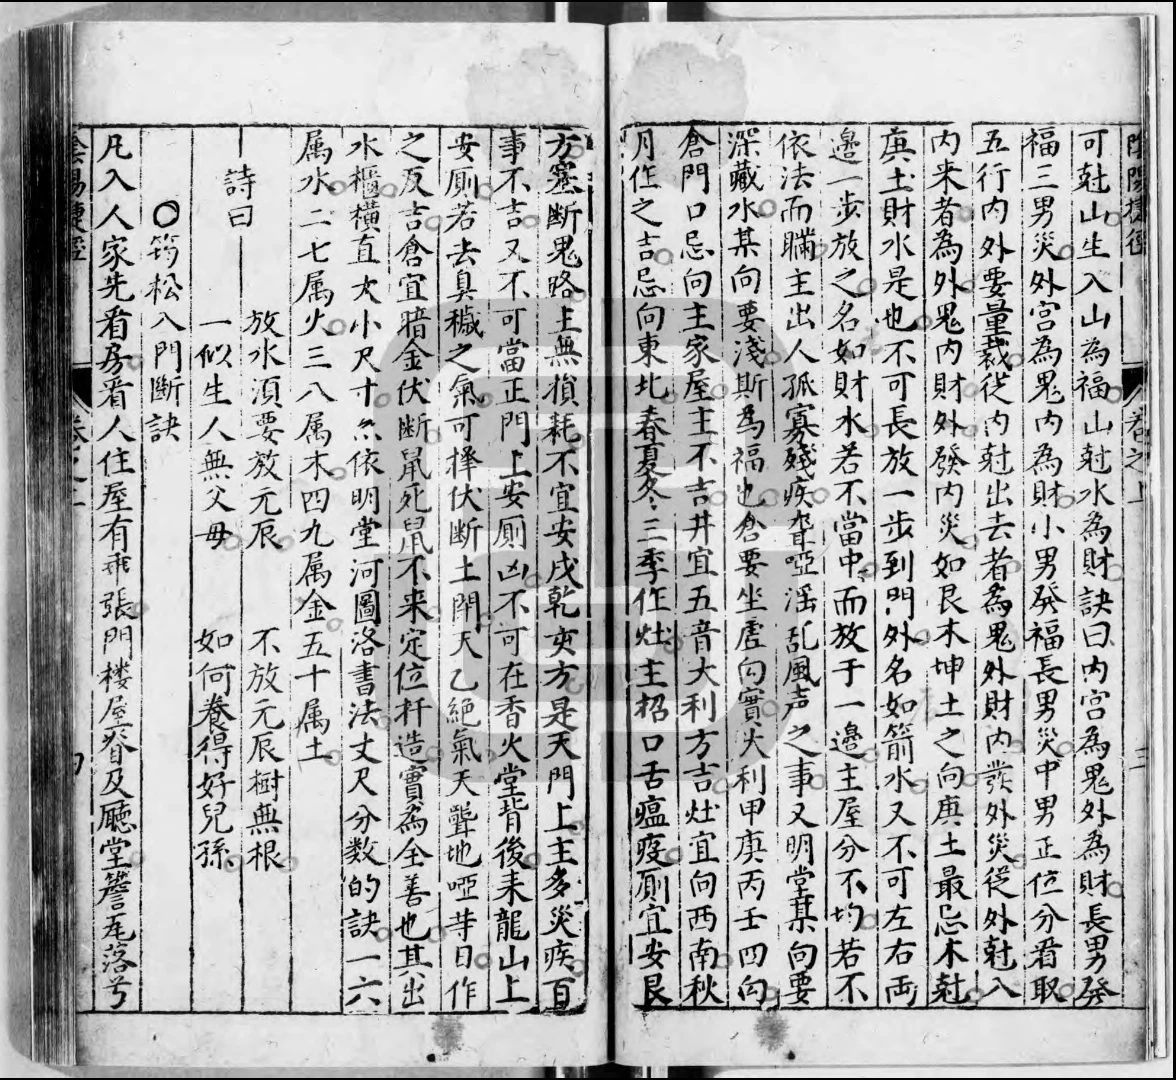 陰陽捷徑 卷之上 三
可尅山生入山為福山尅水為財訣曰内宫為鬼外為財長男發
福三男災外宫為鬼内為財小男發福長男災中男正位分看取
五行内外要量裁從内尅出去者為鬼外財内發外災從外尅入
内来者為外鬼内財外發内災如艮木坤土之向庚土最忌木尅
庚土財水是也不可長放一步到門外名如箭水又不可左右両
邊一步放之名如財水若不當中而放于一邊主屋分不均若不
依法而瞞主出人孤寡殘疾聾啞滛乱風声之事又明堂其向要
深藏水其向要淺斯為福也倉要坐虚向實大利甲庚丙壬四向
倉門口忌向主家屋主不吉井宜五音大利方吉灶宜向西南秋
月作之吉忌向東北春夏冬三季作灶主招口舌瘟疫厠宜安艮
方塞断鬼路主無損耗不宜安戌乾亥方是天門上主多災疾百
事不吉又不可當正門上安厠凶不可在香火堂背後来龍山上
安厠若去臭穢之氣可擇伏断土閉天乙絕氣天聾地啞䓁日作
之反吉倉宜暗金伏断鼠死鼠不来定位扦造實為全善也其出
水樞横直大小尺寸点依明堂河圖洛書法丈尺分数的訣一六
属水二七属火三八属木四九属金五十属土
詩曰
放水須要放元辰 不放元辰樹無根
一似生人無父母 如何養得好兒孫
○筠松入門斷訣
凡入人家先看房看人住屋有飛張門楼屋脊及廳堂簷尾落兮